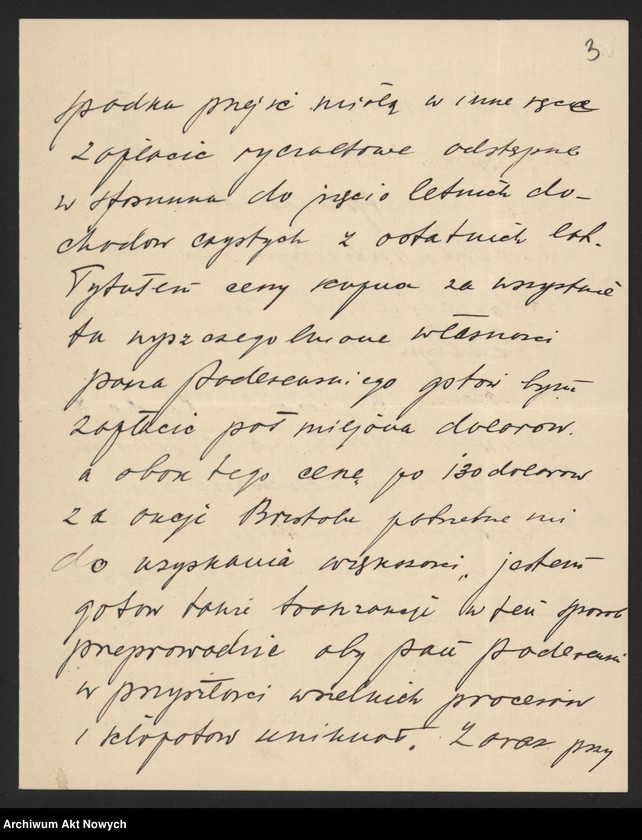 3
spadku przejść miały w inne ręce
zapłacić ryczałtowe odstępne
w stosunku do pięcio letnich do-
chodów czystych z ostatnich lat.
Tytułem ceny kupna za wszystkie
tu wyszczegolnione własności
pana Paderewskiego gotow bym
zapłacić poł miljona dolarow.
a obok tego cenę po 130 dolarow
za akcji Bristolu potrzebne mi
do uzyskania większosci, jestem
gotow także tranzakcje w ten sposob
przeprowadzić aby pan Paderewski
w przyszłosci wszelkich procesow
i kłopotow uniknoł. Zaraz przy
Archiwum Akt Nowych